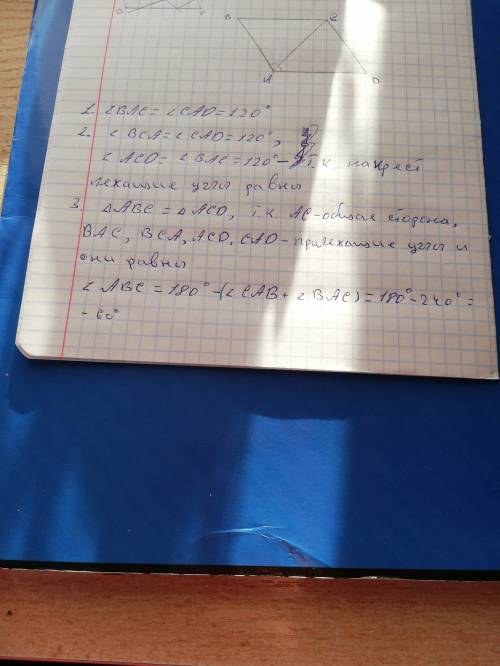 B C
A D
1. ∠BAC = ∠CAD = 120°
2. ∠BCA = ∠CAD = 120°,
∠ACD = ∠BAC = 120° - т.к. накрест
лежащие углы равны
3. ΔABC = ΔACD, т.к. AC - общая сторона,
BAC, BCA, ACD, CAD - прилежащие углы и
они равны
∠ABC = 180° - (∠CAB + ∠BAC) = 180° - 240° =
- 60°